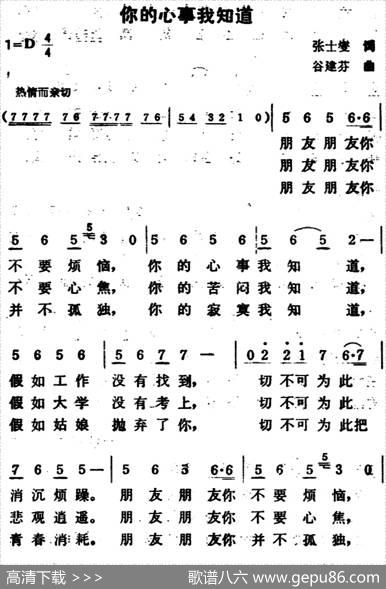 你的心事我知道
1=D 4/4
张士燮 词
谷建芬 曲
热情而亲切
(7777 76 7777 76 | 54 32 1 0) | 5 6 5 6·6 |
朋友朋友你
朋友朋友你
朋友朋友你
5 6 5 5 3 0 | 5 6 5 6 | 5 6 5 2— |
不要烦恼, 你的心事我知道,
不要心焦, 你的苦闷我知道,
并不孤独, 你的寂寞我知道,
5 6 5 6 | 5 6 7 7— | 0 2 2 1 7 6·7 |
假如工作 没有找到, 切不可为此
假如大学 没有考上, 切不可为此
假如姑娘 抛弃了你, 切不可为此把
7 6 5 5— | 5 6 5 6·6 | 5 6 5 5 3 0
消沉烦躁。朋友朋友你 不要烦恼,
悲观逍遥。朋友朋友你 不要心焦,
青春消耗。朋友朋友你 并不孤独,
高清下载 >>>
歌谱八六 www.gepu86.com